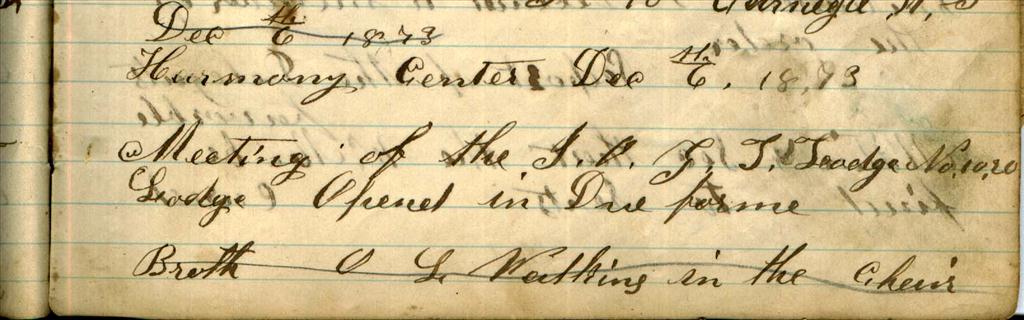 Carnegie N, S
Dec 6th 1873
Harmony Center Dec 6th, 1873
Meeting of the I. O. G. T. Lodge No, 10, 20
Lodge Opened in Due forme
Broth O L Watkins in the Cheir